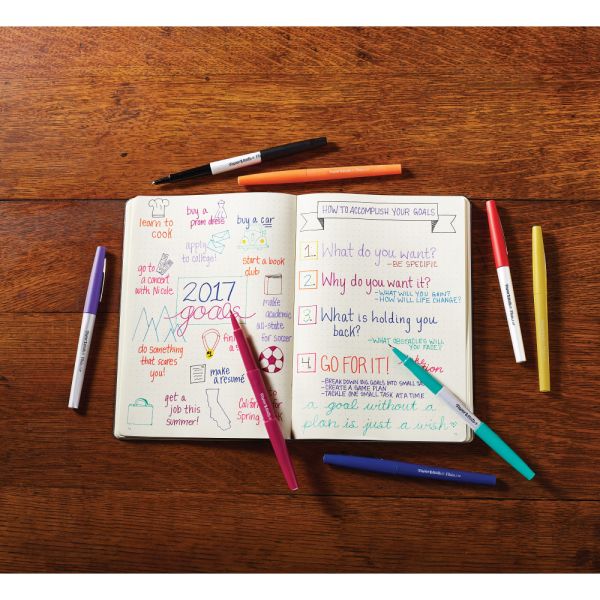 learn to
cook
buy a
prom dress
buy a car
apply
to college!
start a book
club
go to
a concert
with Nicole
2017
goals
make
academic
all-state
for soccer
do something
that scares
you!
make
a resumé
get a
job this
summer!
Spring
HOW TO ACCOMPLISH YOUR GOALS
1. What do you want?
- BE SPECIFIC
2. Why do you want it?
- WHAT WILL YOU GAIN?
- HOW WILL LIFE CHANGE?
3. What is holding you
back?
- WHAT OBSTACLES WILL
YOU FACE?
4. GO FOR IT!
- BREAK DOWN BIG GOALS INTO SMALL
- CREATE A GAME PLAN
- TACKLE ONE SMALL TASK AT A TIME
a goal without a
plan is just a wish
Paper Mate Flair
Paper Mate Flair